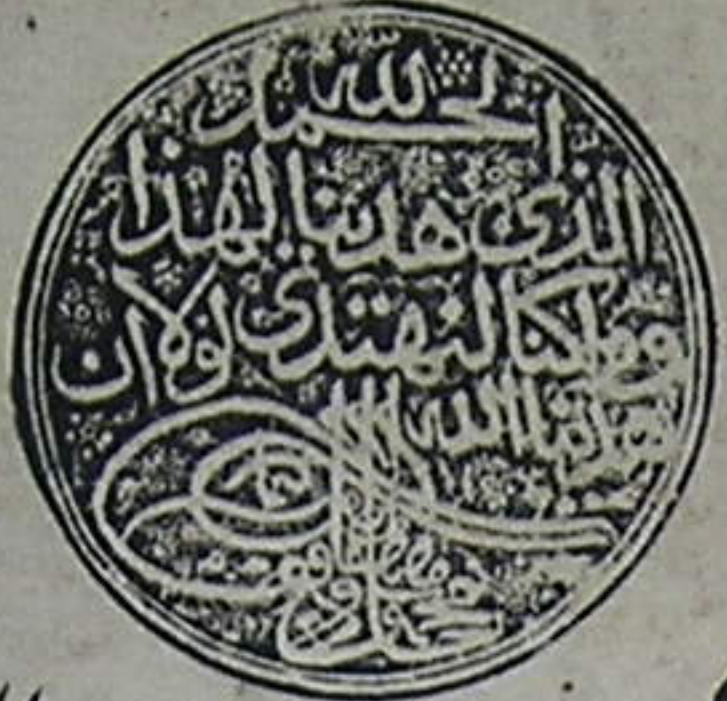 الحمد لله
الذى هدينا لهذا
وما كنا لنهتدى لولا ان
هدانا الله